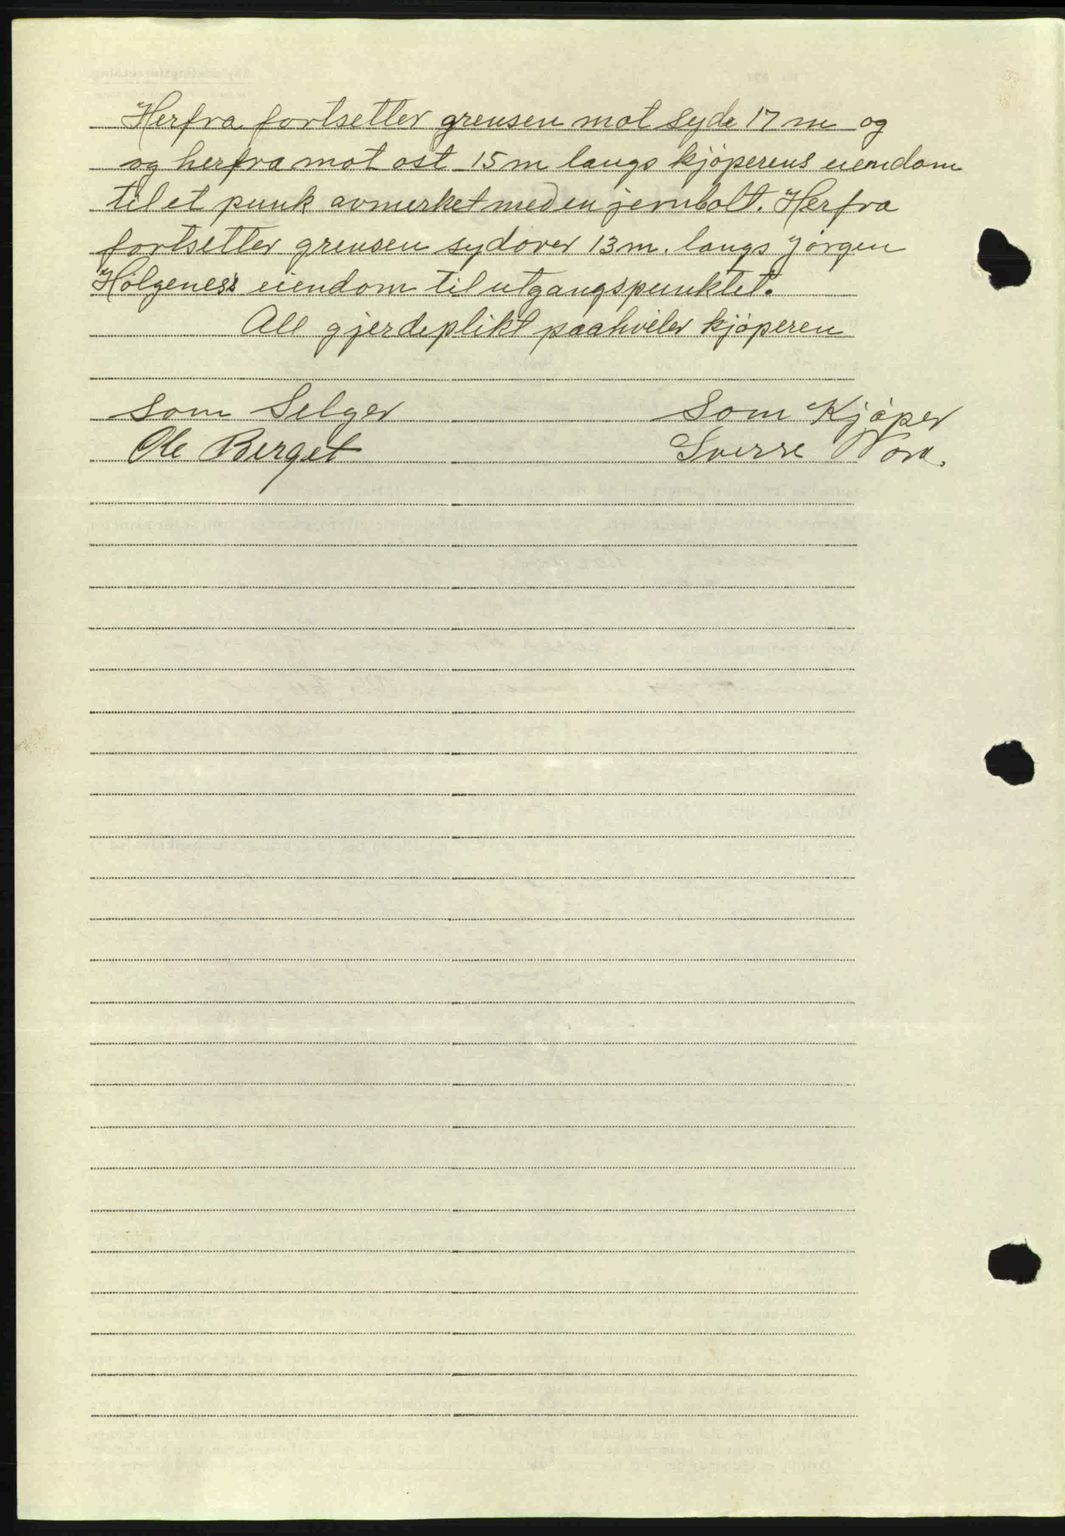 Herfra fortsetter grensen mot syde 17 m og
og herfra mot ost 15 m langs kjøperens eiendom
til et punk avmerket med en jernbolt. Herfra
fortsetter grensen sydover 13 m. langs Jørgen
Holgenes's eiendom til utgangspunktet.
All gjerdeplikt paahviler kjøperen
Som Selger
Som Kjøper
Ole Berget
Sverre